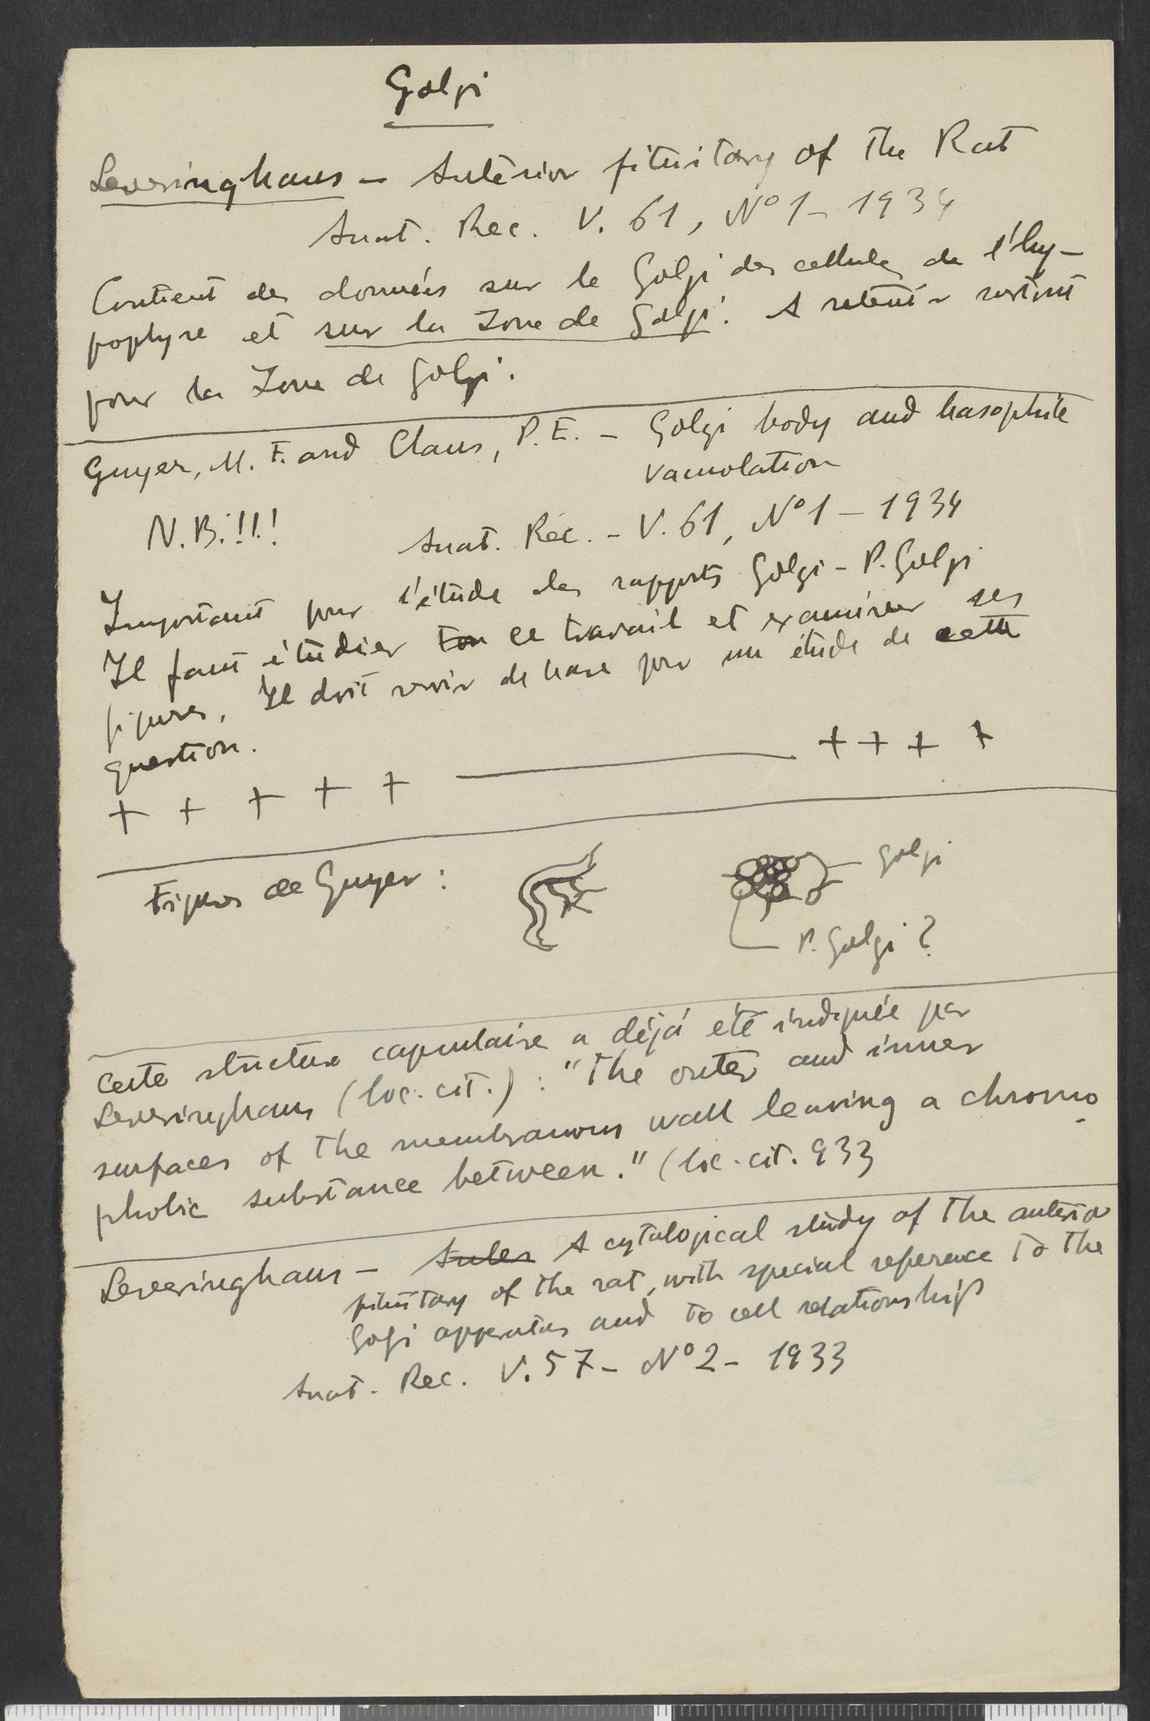 Golgi
Severinghaus – Anterior pituitary of the Rat
Anat. Rec. V. 61, N° 1 – 1934
Contient des données sur le Golgi des cellules de l'hy-
pophyse et sur la zone de Golgi. A retenir surtout
pour la Zone de Golgi.
Guyer, M. F. and Claus, P. E. – Golgi body and basophile
vacuolation
N. B.!!!
Anat. Rec. – V. 61, N° 1 – 1934
Important pour l'étude des rapports Golgi – P. Golgi
Il faut étudier ton ce travail et examiner ses
figures. Il doit servir de base pour un étude de cette
question.
+ + + + + ——— + + + +
Figures de Guyer :
Golgi
P. Golgi ?
Cette structure capsulaire a déjá été indiquée par
Severinghaus (loc. cit.) : "The outer and inner
surfaces of the membranous wall leaving a chromo
phobic substance between." (loc. cit. 933
Severinghaus – Anter A cytological study of the anterior
pituitary of the rat, with special reference to the
Golgi apparatus and to cell relationships
Anat. Rec. V. 57 – N° 2 – 1933